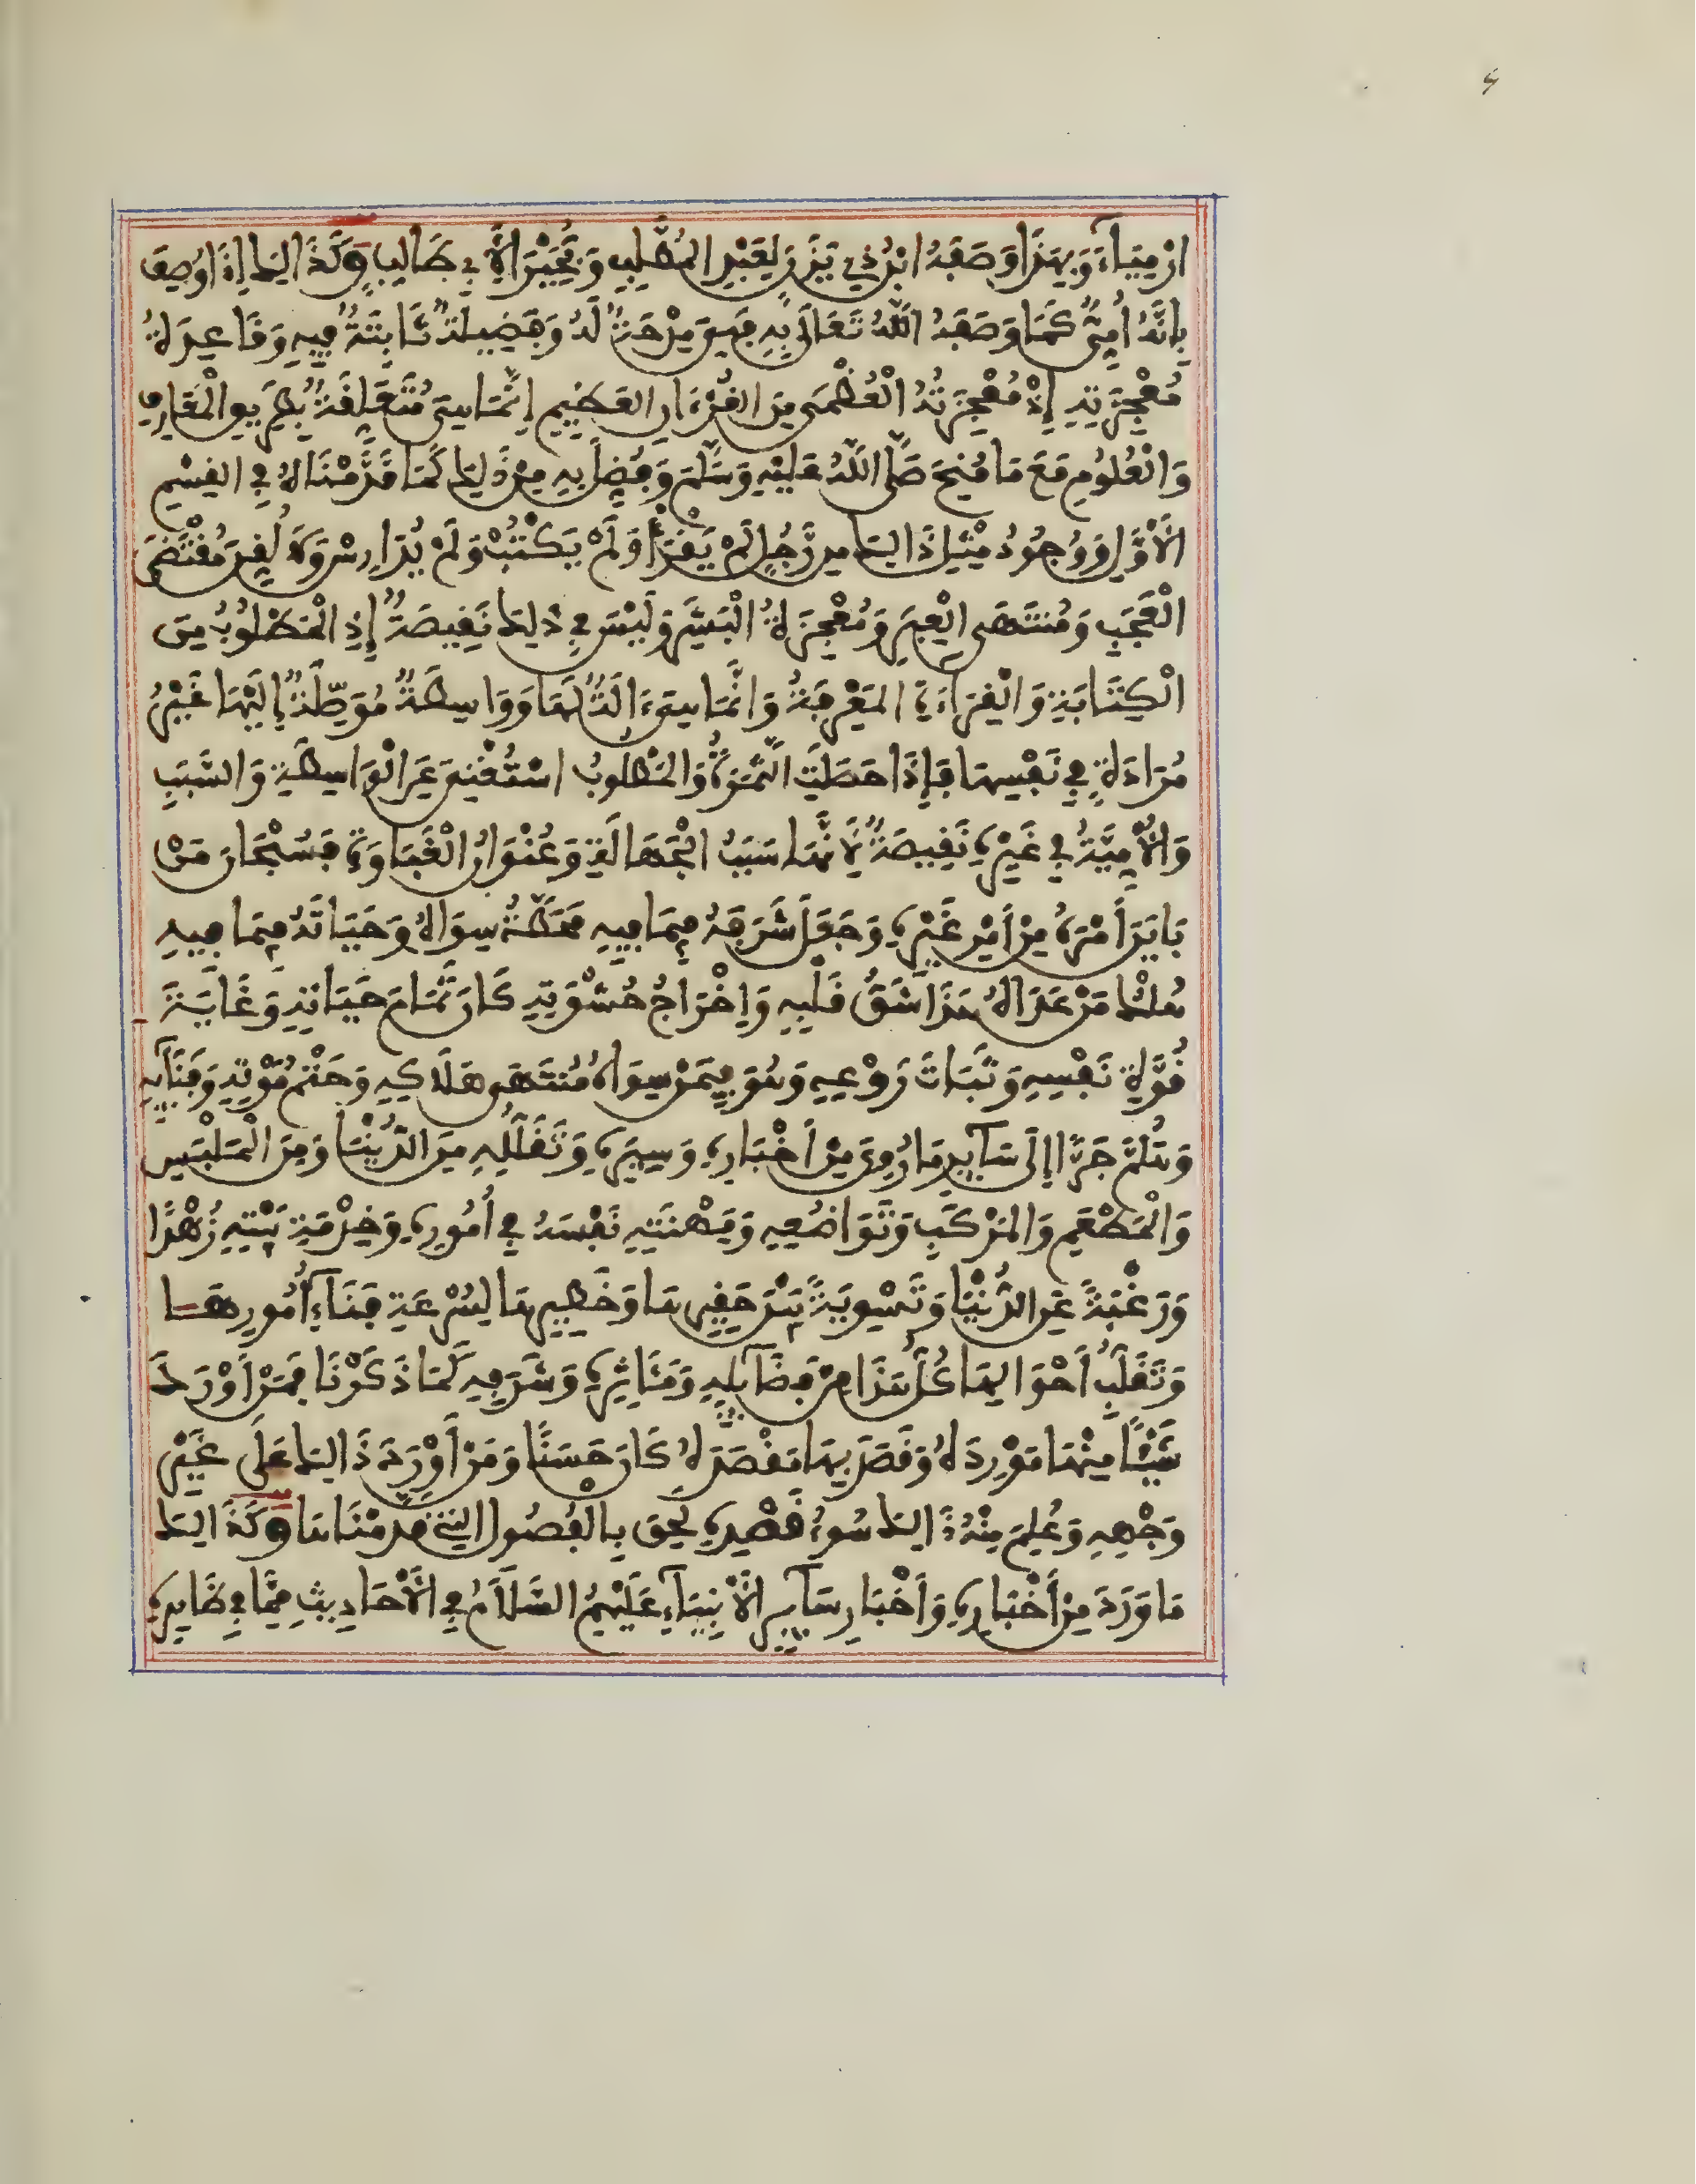 ارْمِيَاءَ وَبِهَذَا وَصَفَهُ ابْنُ ذِي يَزَنَ لِعَبْدِ الْمُطَّلِبِ وَبَحِيرَا لِأَبِي طَالِبٍ وَكَذَالِكَ إِذَا وُصِفَ
بِأَنَّهُ أُمِّيٌّ كَمَا وَصَفَهُ اللَّهُ تَعَالَى بِهِ فَهِيَ مِدْحَةٌ لَهُ وَفَضِيلَةٌ ثَابِتَةٌ فِيهِ وَقَاعِدَةُ
مُعْجِزَتِهِ إِذْ مُعْجِزَتُهُ الْعُظْمَى مِنَ الْقُرْءَانِ الْعَظِيمِ إِنَّمَا هِيَ مُتَعَلِّقَةٌ بِطَرِيقِ الْمَعَارِفِ
وَالْعُلُومِ مَعَ مَا مُنِحَ صَلَّى اللَّهُ عَلَيْهِ وَسَلَّمَ وَفُضِّلَ بِهِ مِنْ ذَلِكَ كَمَا قَدَّمْنَاهُ فِي الْقِسْمِ
الْأَوَّلِ وَوُجُودُ مِثْلِ ذَالِكَ مِن رَّجُلٍ لَمْ يَقْرَأْ وَلَمْ يَكْتُبْ وَلَمْ يُدَارِسْ وَلَا لُقِّنَ مُقْتَضَى
الْعَجَبِ وَمُنتَهَى الْعِبَرِ وَمُعْجِزَةُ الْبَشَرِ وَلَيْسَ فِي ذَلِكَ نَقِيصَةٌ إِذِ الْمَطْلُوبُ مِنَ
الْكِتَابَةِ وَالْقِرَاءَةِ الْمَعْرِفَةُ وَإِنَّمَا هِيَ ءَالَةٌ لَهَا وَوَاسِطَةٌ مُوَصِّلَةٌ إِلَيْهَا غَيْرُ
مُرَادَةٍ فِي نَفْسِهَا فَإِذَا حَصَلَتِ الثَّمَرَةُ وَالْمَطْلُوبُ اسْتُغْنِيَ عَنِ الْوَاسِطَةِ وَالسَّبَبِ
وَالْأُمِّيَّةُ فِي غَيْرِهِ نَقِيصَةٌ لِأَنَّهَا سَبَبُ الْجَهَالَةِ وَعُنْوَانُ الْغَبَاوَةِ فَسُبْحَانَ مَنْ
بَايَنَ أَمْرَهُ مِنْ أَمْرِ غَيْرِهِ وَجَعَلَ شَرَفَهُ فِيمَا فِيهِ مَحَطَّةُ سِوَاهُ وَحَيَاتَهُ فِيمَا فِيهِ
هُلْكُ مَنْ عَدَاهُ هَذَا شَقُّ قَلْبِهِ وَإِخْرَاجُ حُشْوَتِهِ كَانَ تَمَامَ حَيَاتِهِ وَغَايَةَ
قُوَّةِ نَفْسِهِ وَثَبَاتَ رَوْعِهِ وَهُوَ فِيمَنْ سِوَاهُ مُنتَهَى هَلَاكِهِ وَحَتْمُ مَوْتِهِ وَفَنَائِهِ
وَهَلُمَّ جَرًّا إِلَى سَائِرِ مَا رُوِيَ مِنْ أَخْبَارِهِ وَسِيَرِهِ وَتَقَلُّلِهِ مِنَ الدُّنْيَا وَمِنَ الْمَلْبَسِ
وَالْمَطْعَمِ وَالْمَرْكَبِ وَتَوَاضُعِهِ وَمِهْنَتِهِ نَفْسَهُ فِي أُمُورِهِ وَخِدْمَةِ بَيْتِهِ زُهْدًا
وَرَغْبَةً عَنِ الدُّنْيَا وَتَسْوِيَةً بَيْنَ حَقِيرِهَا وَخَطِيرِهَا لِسُرْعَةِ فَنَاءِ أُمُورِهَا
وَتَقَلُّبِ أَحْوَالِهَا كُلُّ هَذَا مِنْ فَضَائِلِهِ وَمَئَاثِرِهِ وَشَرَفِهِ كَمَا ذَكَرْنَا فَمَنْ أَوْرَدَ
شَيْئًا مِنْهَا مَوْرِدَهُ وَقَصَدَ بِهَا مَقْصَدَهُ كَانَ حَسَنًا وَمَنْ أَوْرَدَ ذَالِكَ عَلَى غَيْرِ
وَجْهِهِ وَعُلِمَ مِنْهُ ذَالِكَ سُوءُ قَصْدِهِ لَحِقَ بِالْفُصُولِ الَّتِي قَدَّمْنَاهَا وَكَذَالِكَ
مَا وَرَدَ مِنْ أَخْبَارِهِ وَأَخْبَارِ سَائِرِ الْأَنْبِيَاءِ عَلَيْهِمُ السَّلَامُ فِي الْأَحَادِيثِ مِمَّا فِي ظَاهِرِهِ